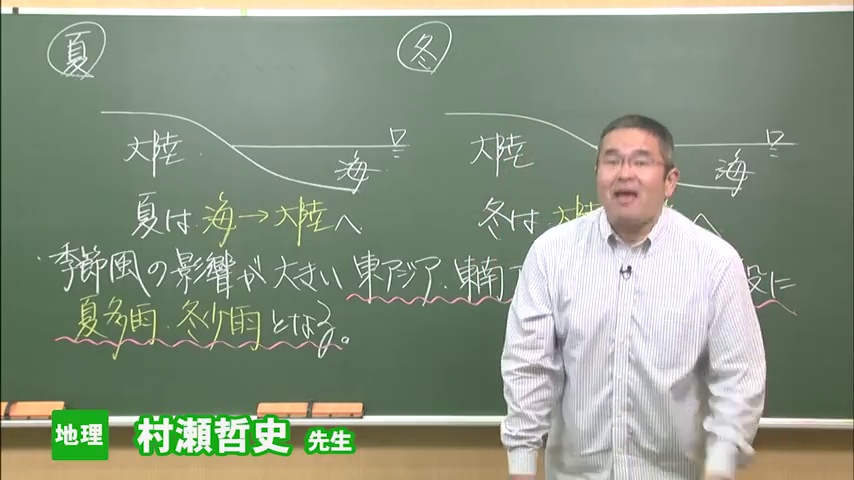 夏
冬
大陸
海
大陸
海
夏は 海→大陸へ
冬は 大陸 へ
季節風の影響が大きい 東アジア・東南 に
夏多雨・冬少雨となる。
地理 村瀬哲史 先生